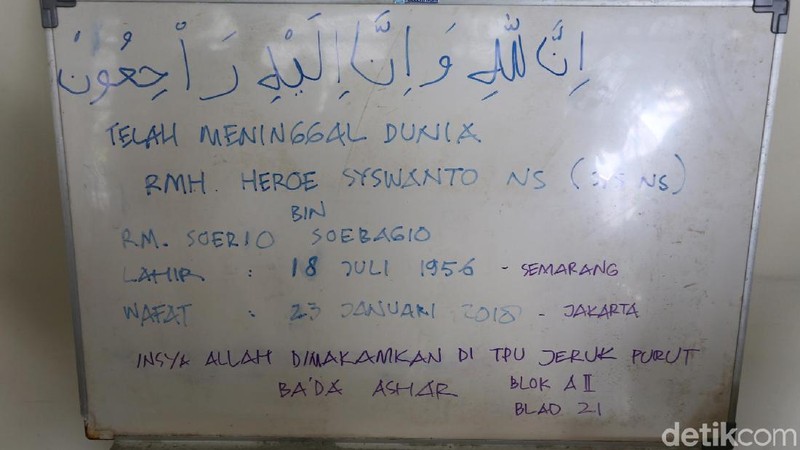 اِنَّا لِلّٰهِ وَ اِنَّا اِلَيْهِ رَاْجِعُوْنَ
TELAH MENINGGAL DUNIA
RMH. HEROE SYSWANTO NS (SYS NS)
BIN
R.M. SOERIO SOEBAGIO
LAHIR : 18 JULI 1956 - SEMARANG
WAFAT : 23 JANUARI 2018 - JAKARTA
INSYA ALLAH DIMAKAMKAN DI TPU JERUK PURUT
BA'DA ASHAR BLOK A II
BLAD 21
detikcom